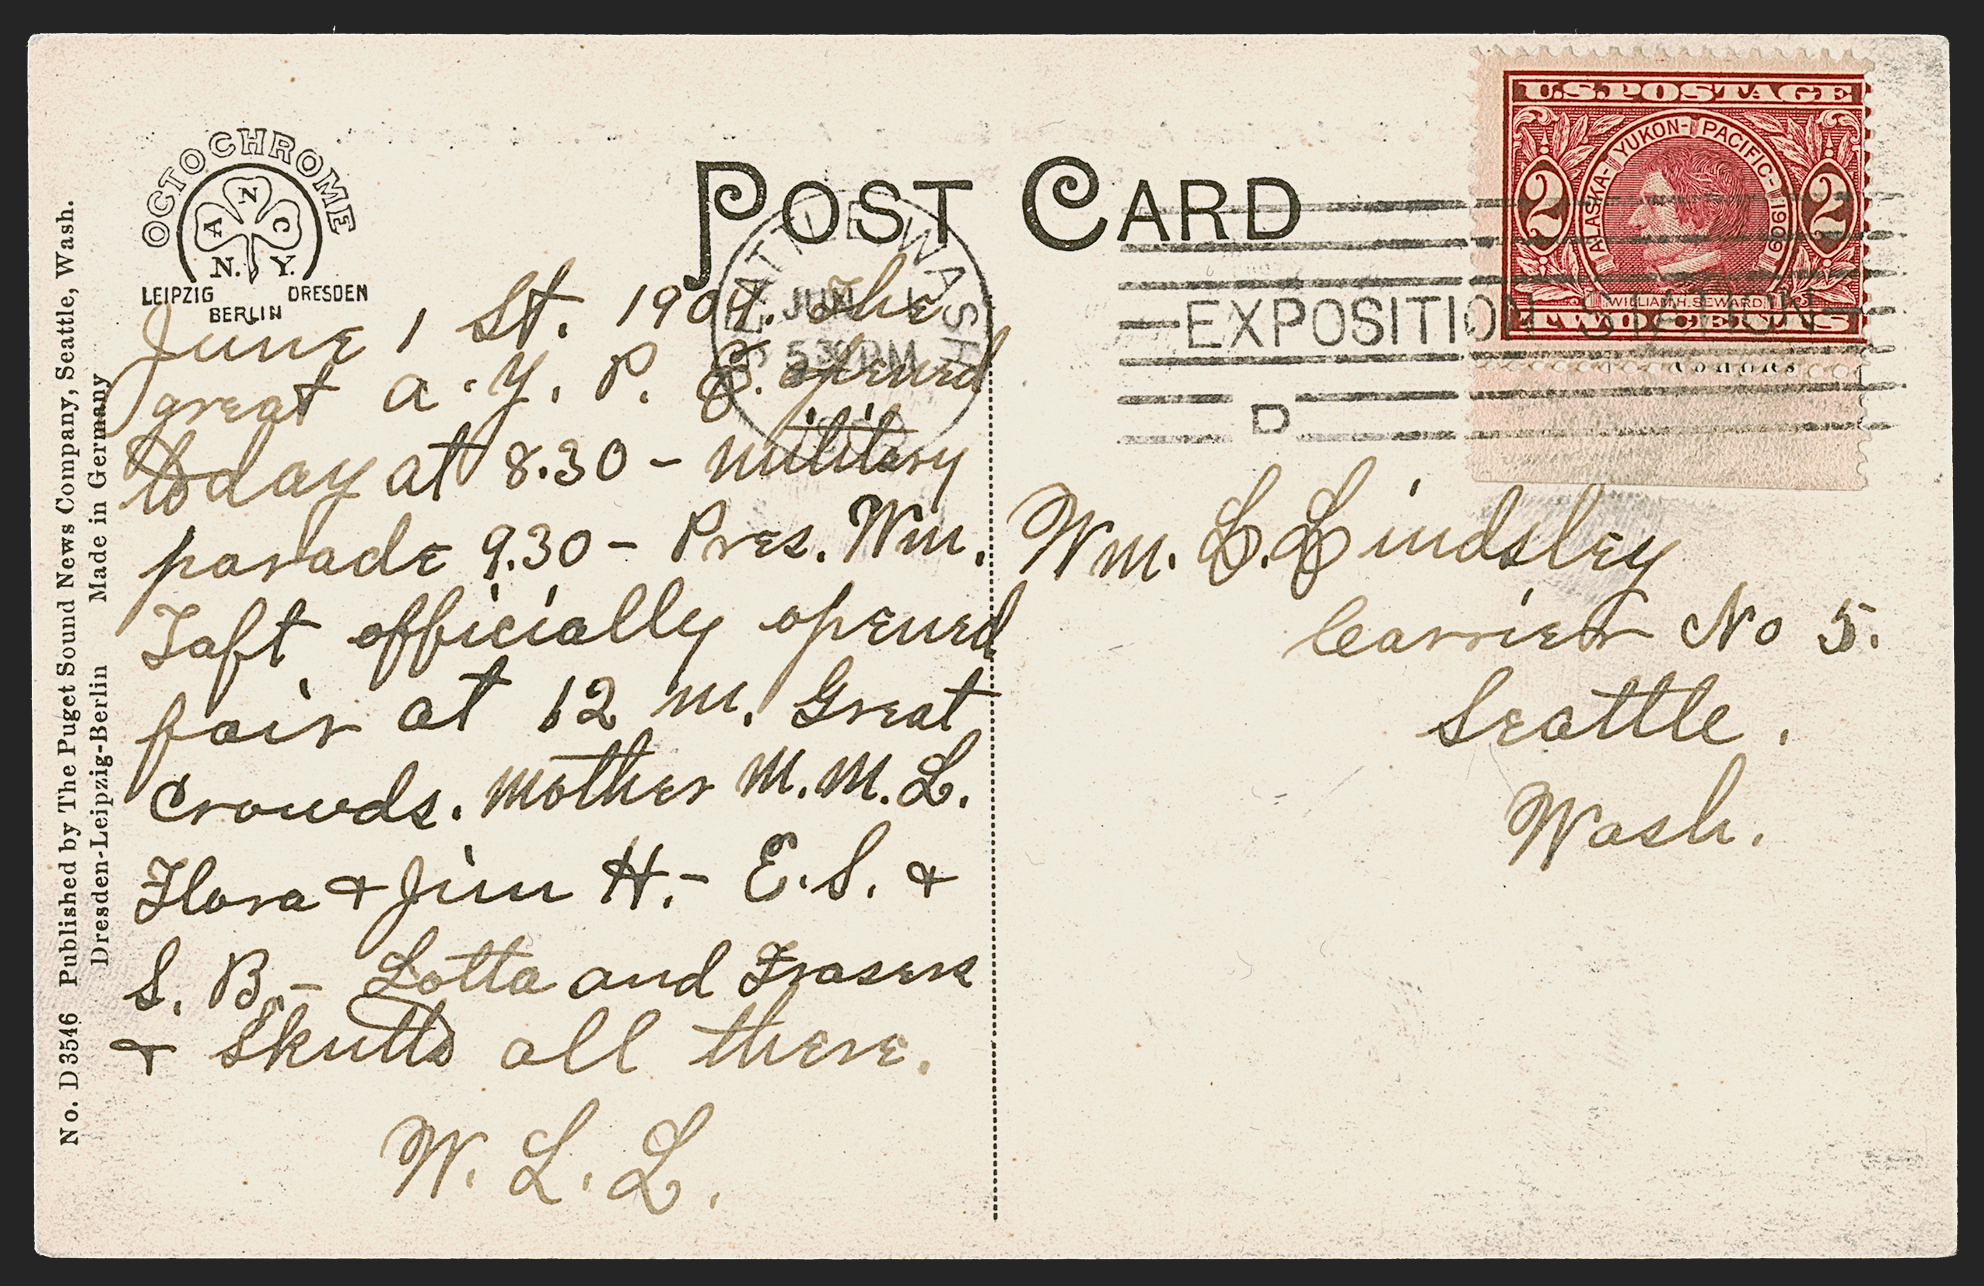 OCTOCHROME
A N C
N. Y.
LEIPZIG DRESDEN
BERLIN
POST CARD
SEATTLE WASH
JUN 1
530 PM
EXPOSITION STATION
D
U.S. POSTAGE
ALASKA-YUKON-PACIFIC-1909
2 2
WILLIAM H. SEWARD
TWO CENTS
No. D 3546 Published by The Puget Sound News Company, Seattle, Wash.
Dresden-Leipzig-Berlin Made in Germany
June 1 St. 1909. The
great A. Y. P. E. opened
today at 8.30 - military
parade 9.30 - Pres. Wm.
Taft officially opened
fair at 12 m. Great
Crowds. Mother M. M. L.
Flora + Jim H. - E. S. +
S. B. - Lotta and Frasers
+ Skutts all there.
W. L. L.
Wm. L. Lindsley
Carrier No 5.
Seattle.
Wash.